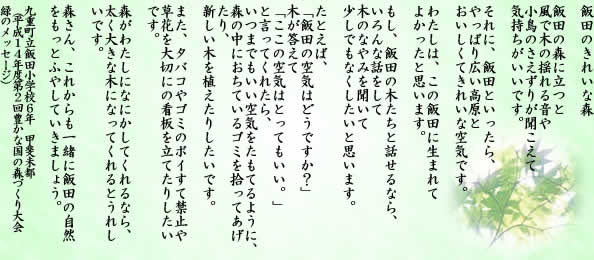 飯田のきれいな森
飯田の森に立つと
風で木の揺れる音や
小鳥のさえずりが聞こえて
気持ちがいいです。
それに、飯田といったら、
やっぱり広い高原と
おいしくてきれいな空気です。
わたしは、この飯田に生まれて
よかったと思います。
もし、飯田の木たちと話せるなら、
いろんな話をして
木のなやみを聞いて
少しでもなくしたいと思います。
たとえば、
「飯田の空気はどうですか?」
木が答えて
「ここの空気はとってもいい。」
と言ってくれたら、
いつまでもいい空気をたもてるように、
森の中におちているゴミを拾ってあげ
たり、
新しい木を植えたりしたいです。
また、タバコやゴミのポイすて禁止や
草花を大切にの看板を立てたりしたい
です。
森がわたしになにかしてくれるなら、
太く大きな木になってくれるとうれし
いです。
森さん、これからも一緒に飯田の自然
をもっとふやしていきましょう。
九重町立飯田小学校6年 甲斐未都
(平成14年度第2回豊かな国の森づくり大会
緑のメッセージ)